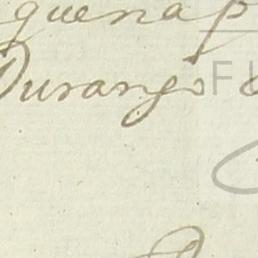 quena p
Durango
FU